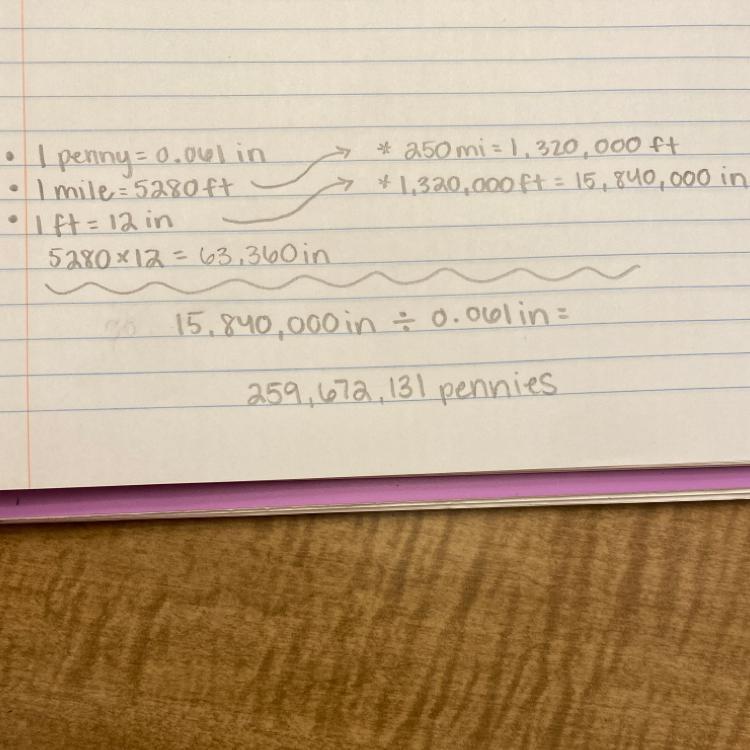 • 1 penny = 0.061 in
• 1 mile = 5280 ft
• 1 ft = 12 in
5280 × 12 = 63,360 in
* 250 mi = 1,320,000 ft
* 1,320,000 ft = 15,840,000 in
15,840,000 in ÷ 0.061 in =
259,672,131 pennies